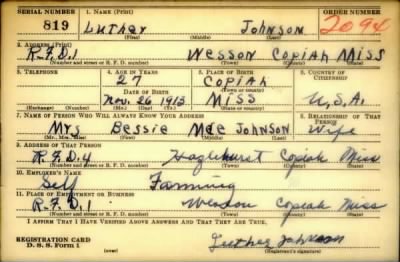 SERIAL NUMBER 1. NAME (Print) ORDER NUMBER
819 Luther Johnson 2094
(First) (Middle) (Last)
2. ADDRESS (Print)
R.F.D.1 Wesson Copiah Miss
(Number and street or R. F. D. number) (Town) (County) (State)
3. TELEPHONE 4. AGE IN YEARS 5. PLACE OF BIRTH 6. COUNTRY OF CITIZENSHIP
27 Copiah
(Town or county)
DATE OF BIRTH
Nov. 26 1913 Miss U.S.A.
(Exchange) (Number) (Mo.) (Day) (Yr.) (State or country)
7. NAME OF PERSON WHO WILL ALWAYS KNOW YOUR ADDRESS 8. RELATIONSHIP OF THAT PERSON
Mrs Bessie Mae Johnson Wife
(Mr., Mrs., Miss) (First) (Middle) (Last)
9. ADDRESS OF THAT PERSON
R.F.D.4 Hazlehurst Copiah Miss
(Number and street or R. F. D. number) (Town) (County) (State)
10. EMPLOYER'S NAME
Self Farming
11. PLACE OF EMPLOYMENT OR BUSINESS
R.F.D.1 Wesson Copiah Miss
(Number and street or R. F. D. number) (Town) (County) (State)
I AFFIRM THAT I HAVE VERIFIED ABOVE ANSWERS AND THAT THEY ARE TRUE.
REGISTRATION CARD
D. S. S. Form 1 Luther Johnson
(Registrant's signature)